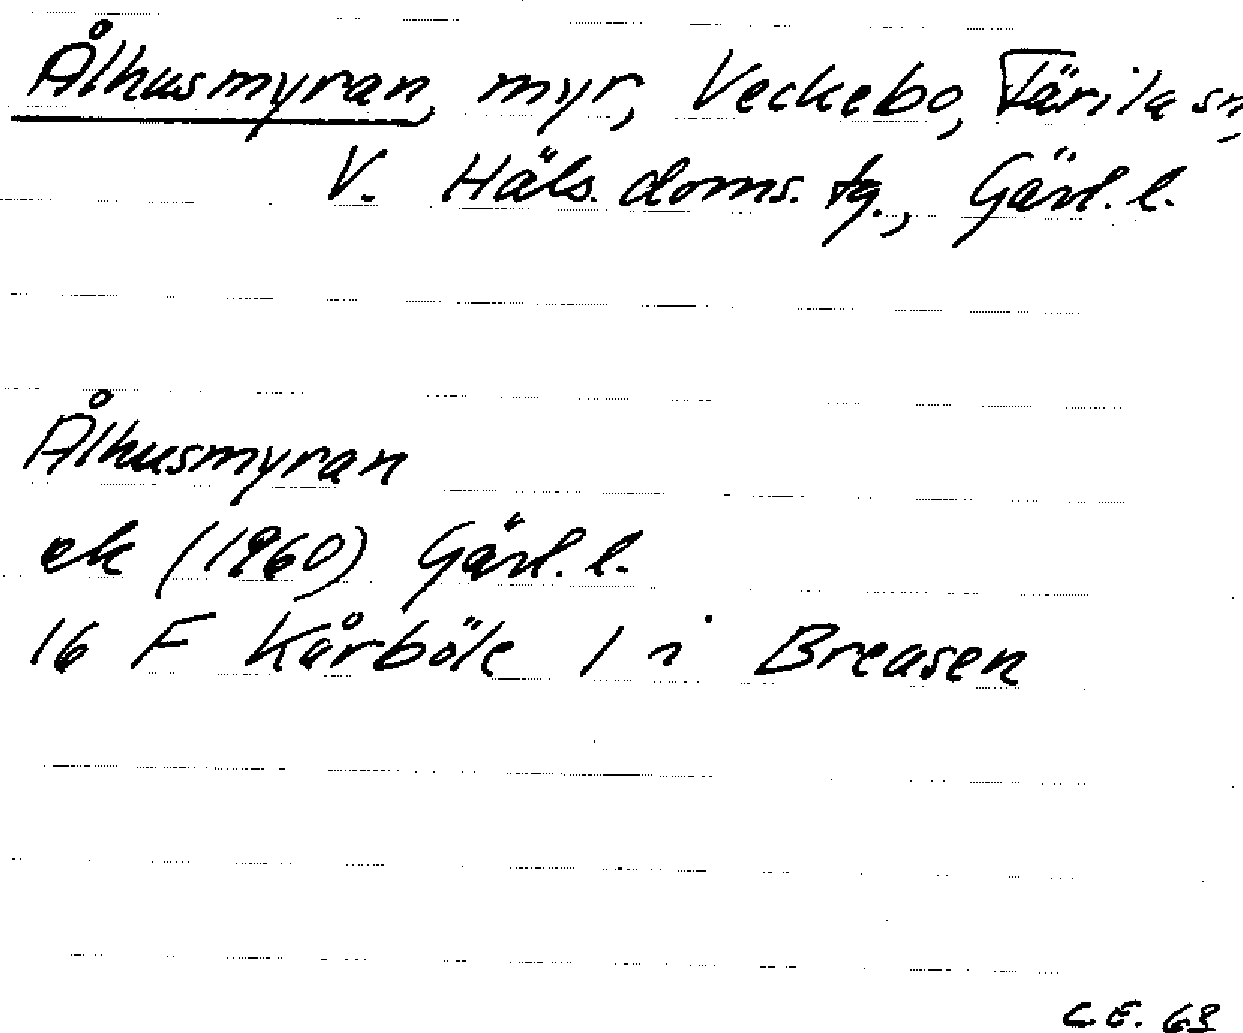 Ålhusmyran, myr, Veckebo, Färila sn,
V. Häls. doms. tg., Gävl. l.
Ålhusmyran
ek (1960) Gävl. l.
16 F Kårböle 1 i Breasen
C.E. 63